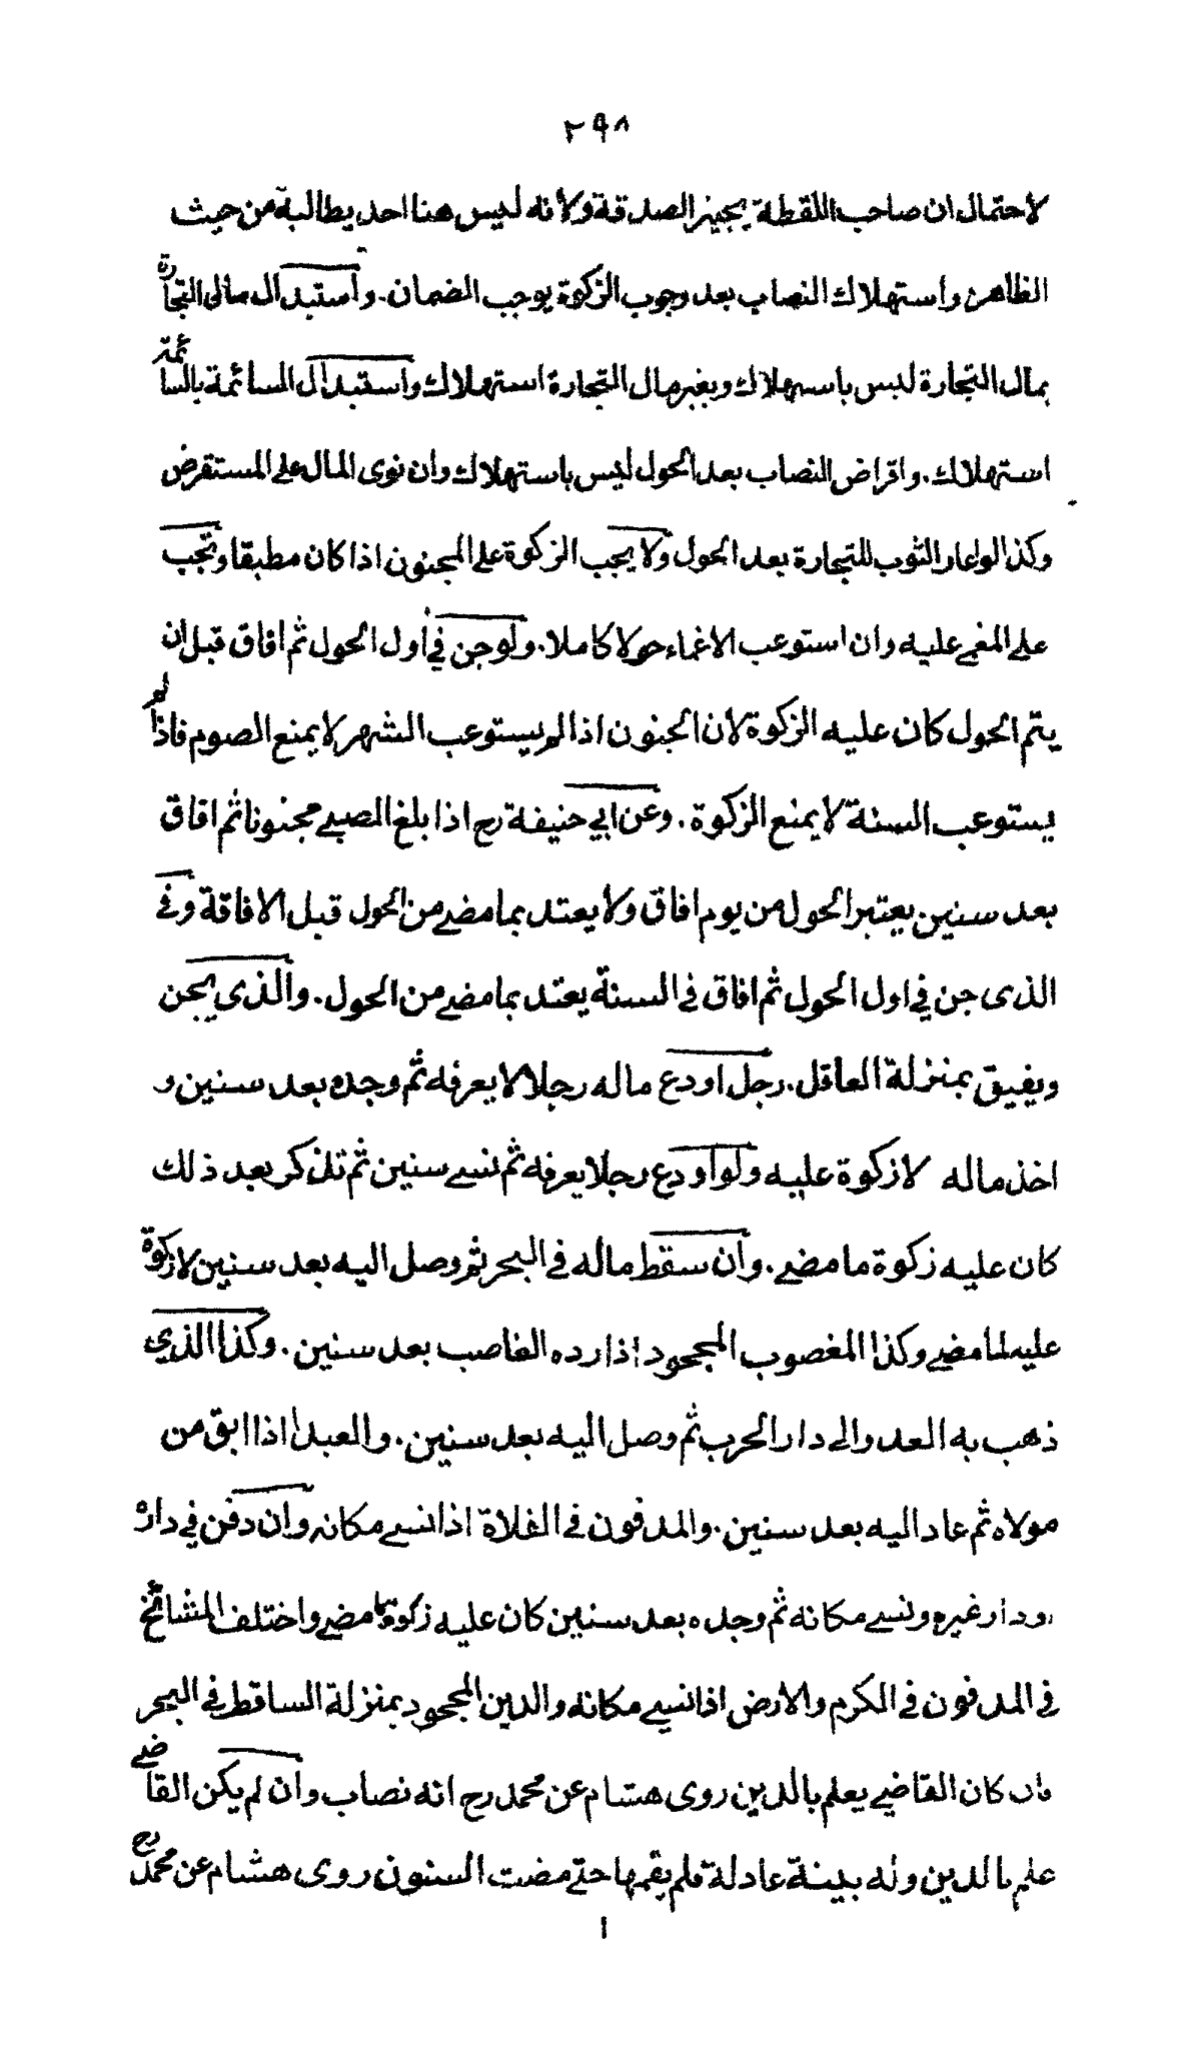 ٢٩٨
لاحتمال ان صاحب اللقطة يجيز الصدقة ولانه ليس هنا احد يطالبه من حيث
الظاهر، واستهلاك النصاب بعد وجوب الزكوة يوجب الضمان. واستبدال مال التجارة
بمال التجارة ليس باستهلاك وبغير مال التجارة استهلاك واستبدال السائمة بالسائمة
استهلاك. واقراض النصاب بعد الحول ليس باستهلاك وان نوى المال على المستقرض
وكذا لو اعار الثوب للتجارة بعد الحول ولا يجب الزكوة على المجنون اذا كان مطبقا وتجب
على المغمى عليه وان استوعب الاغماء حولا كاملا. ولو جن في اول الحول ثم افاق قبل ان
يتم الحول كان عليه الزكوة لان الجنون اذا لم يستوعب الشهر لا يمنع الصوم فاذا لم
يستوعب السنة لا يمنع الزكوة. وعن ابي حنيفة رح اذا بلغ الصبي مجنونا ثم افاق
بعد سنين يعتبر الحول من يوم افاق ولا يعتد بما مضى من الحول قبل الافاقة وفي
الذى جن في اول الحول ثم افاق في السنة يعتد بما مضى من الحول. والذى يجن
ويفيق بمنزلة العاقل. رجل اودع ماله رجلا لا يعرفه ثم وجده بعد سنين و
اخذ ماله لا زكوة عليه ولو اودع رجلا يعرفه ثم نسى سنين ثم تذكر بعد ذلك
كان عليه زكوة ما مضى. وان سقط ماله في البحر ثم وصل اليه بعد سنين لا زكوة
عليه لما مضى وكذا المغصوب المجحود اذا رده الغاصب بعد سنين. وكذا الذي
ذهب به العدو الى دار الحرب ثم وصل اليه بعد سنين. والعبد اذا ابق من
مولاه ثم عاد اليه بعد سنين. والمدفون في الفلاة اذا نسى مكانه وان دفن في داره
او دار غيره ونسى مكانه ثم وجده بعد سنين كان عليه زكوة ما مضى واختلف المشائخ
في المدفون في الكرم والارض اذا نسى مكانه والدين المجحود بمنزلة الساقط في البحر
فان كان القاضي يعلم بالدين روى هشام عن محمد رح انه نصاب وان لم يكن القاضى
علم بالدين وله بينة عادلة فلم يقمها حتى مضت السنون روى هشام عن محمد رح
ا